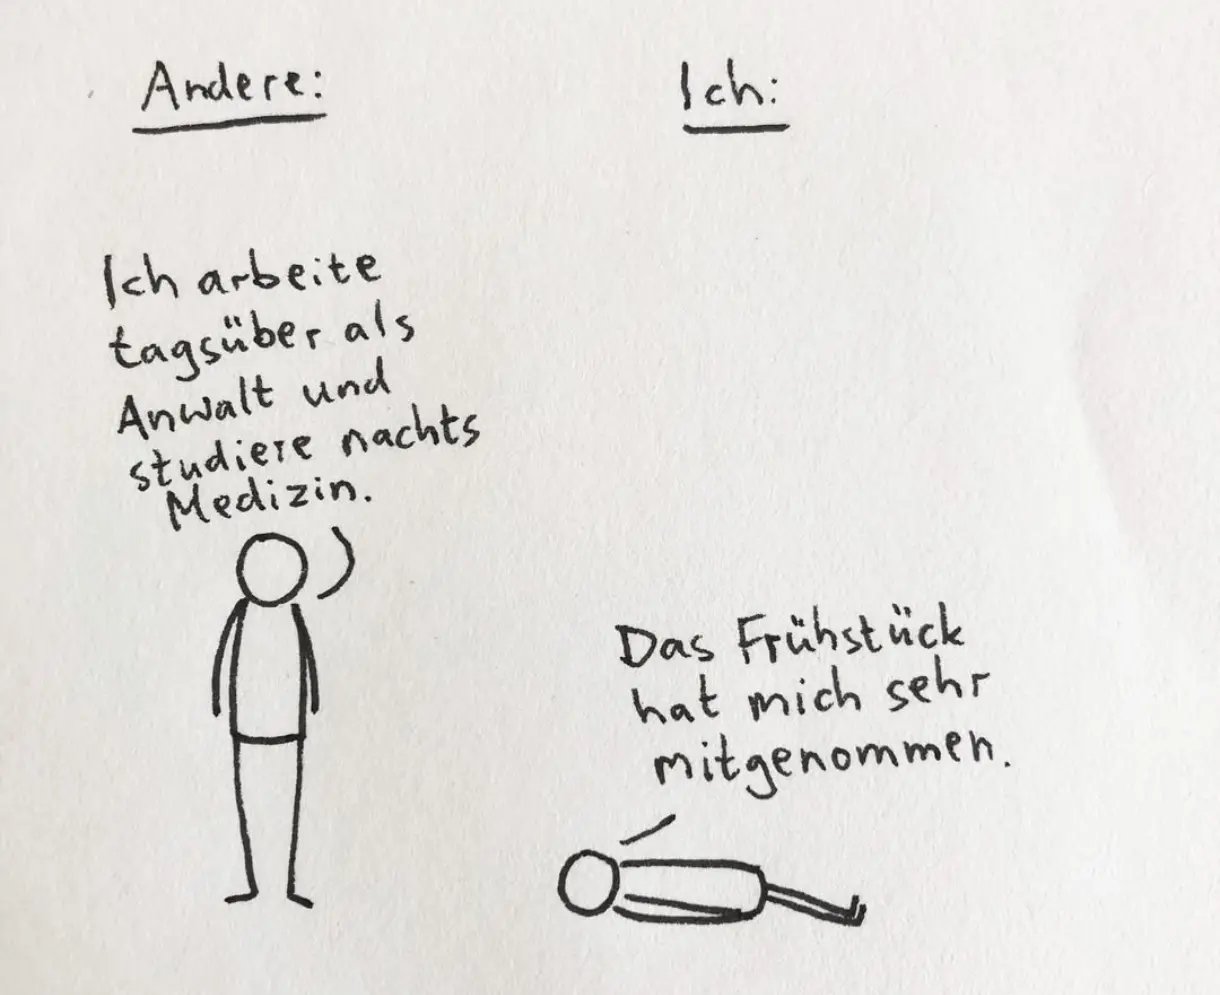 Andere:
Ich arbeite
tagsüber als
Anwalt und
studiere nachts
Medizin.
Ich:
Das Frühstück
hat mich sehr
mitgenommen.